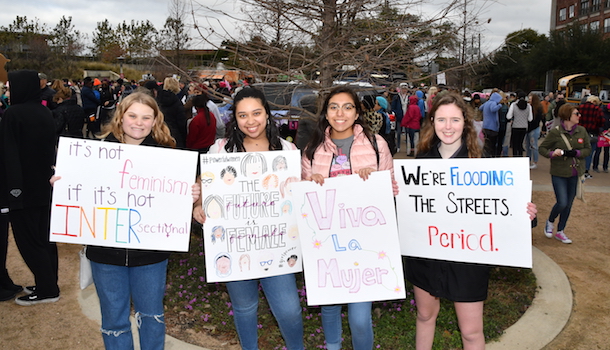 it's not
feminism
if it's not
INTERsectional
THE
FUTURE
is
FEMALE
Viva
La
Mujer
WE'RE FLOODING
THE STREETS.
Period.